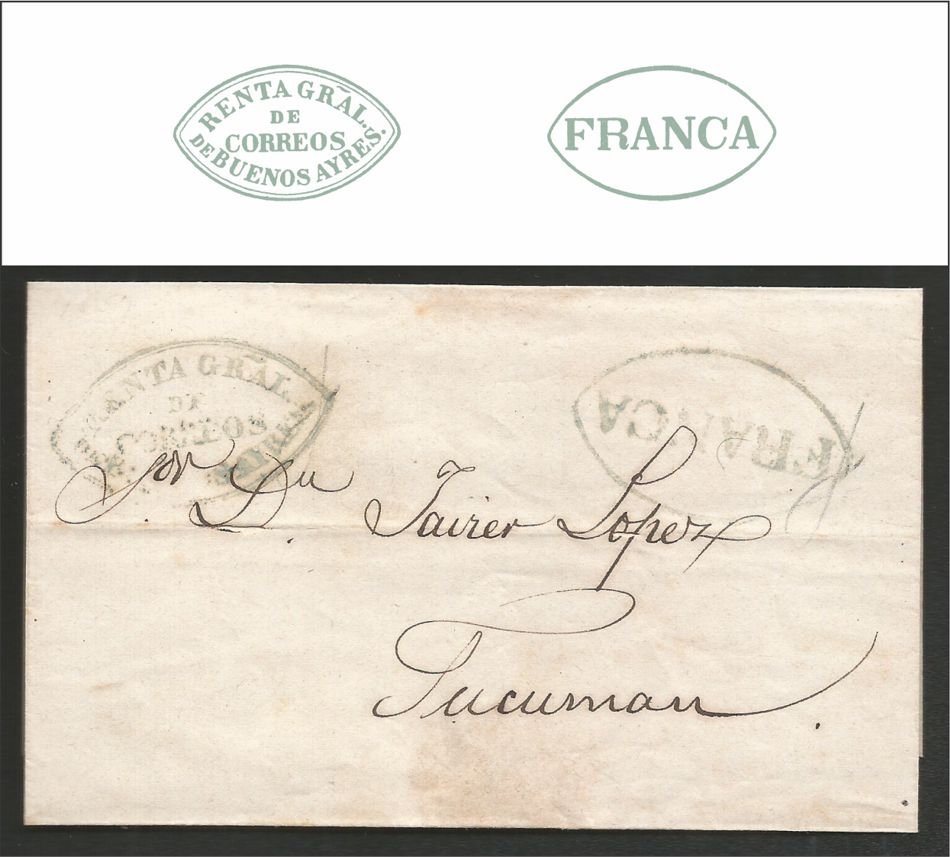 RENTA GRAL.
DE
CORREOS
DE BUENOS AYRES.
FRANCA
RENTA GRAL.
DE
CORREOS
AIRES
FRANCA
Sor. Dn. Javier Lopez
Tucuman.